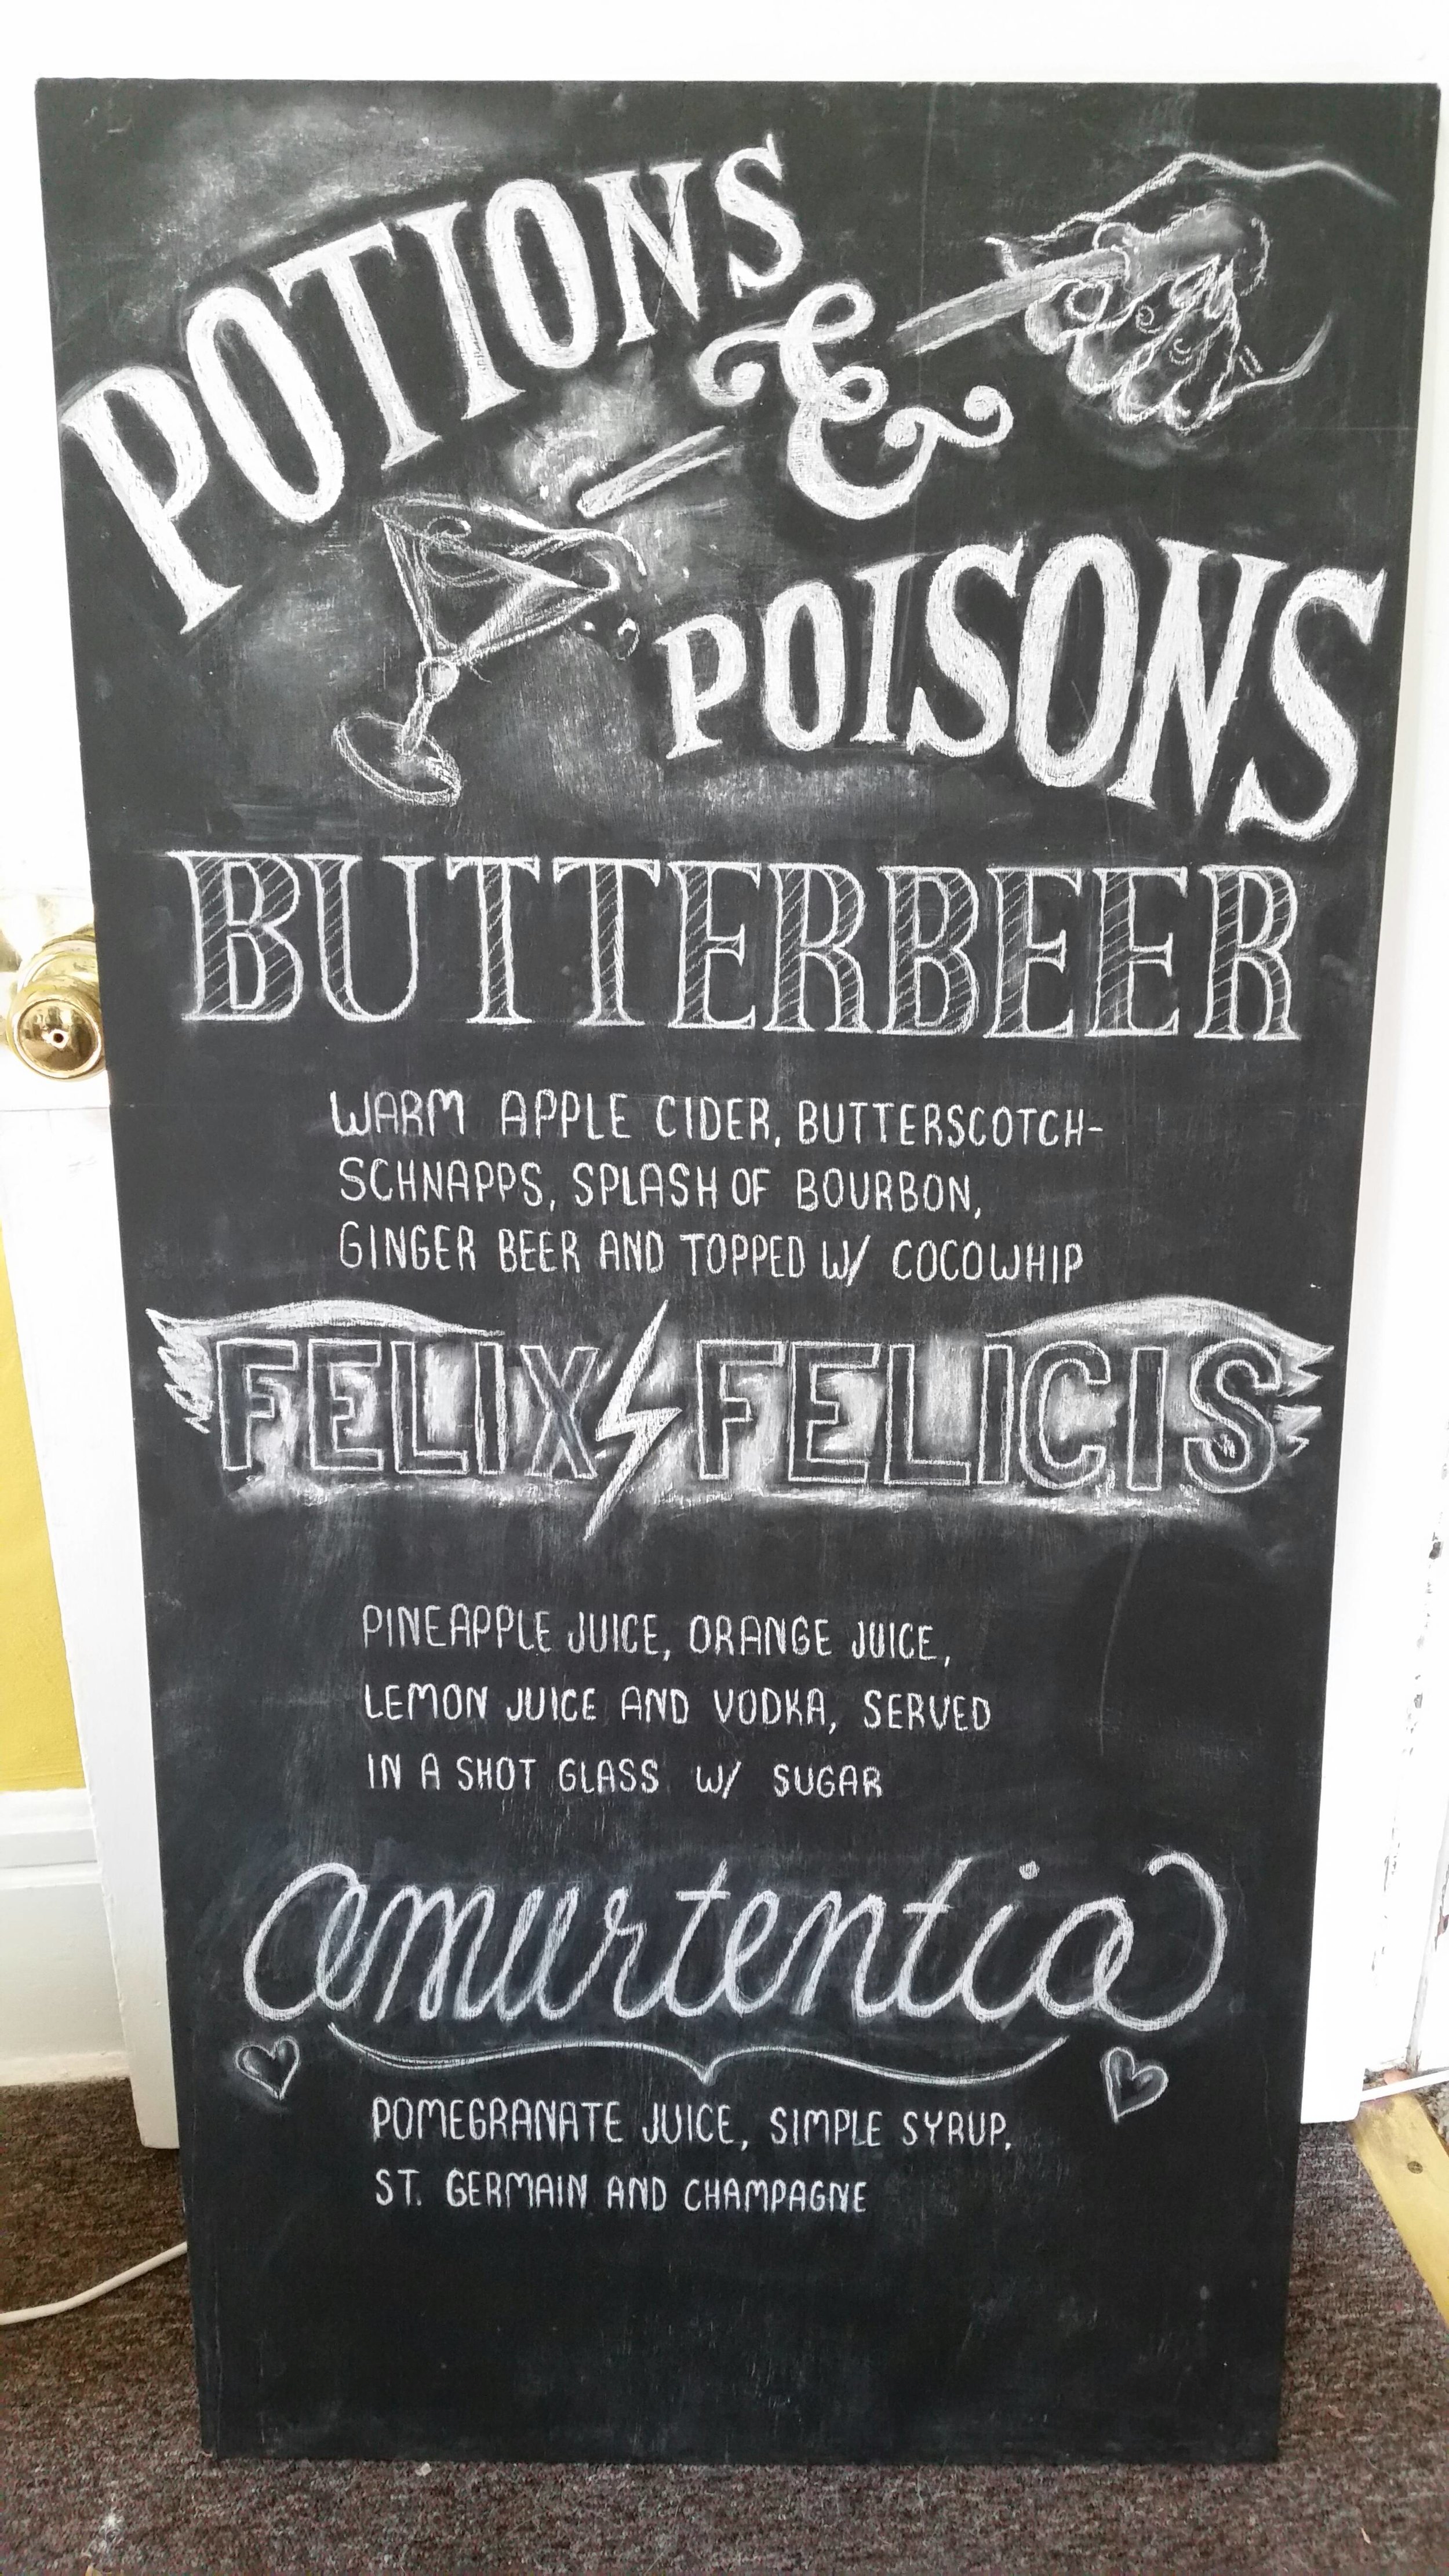 POTIONS
&
POISONS
BUTTERBEER
WARM APPLE CIDER, BUTTERSCOTCH-
SCHNAPPS, SPLASH OF BOURBON,
GINGER BEER AND TOPPED W/ COCOWHIP
FELIX FELICIS
PINEAPPLE JUICE, ORANGE JUICE,
LEMON JUICE AND VODKA, SERVED
IN A SHOT GLASS W/ SUGAR
amurtentia
POMEGRANATE JUICE, SIMPLE SYRUP,
ST. GERMAIN AND CHAMPAGNE